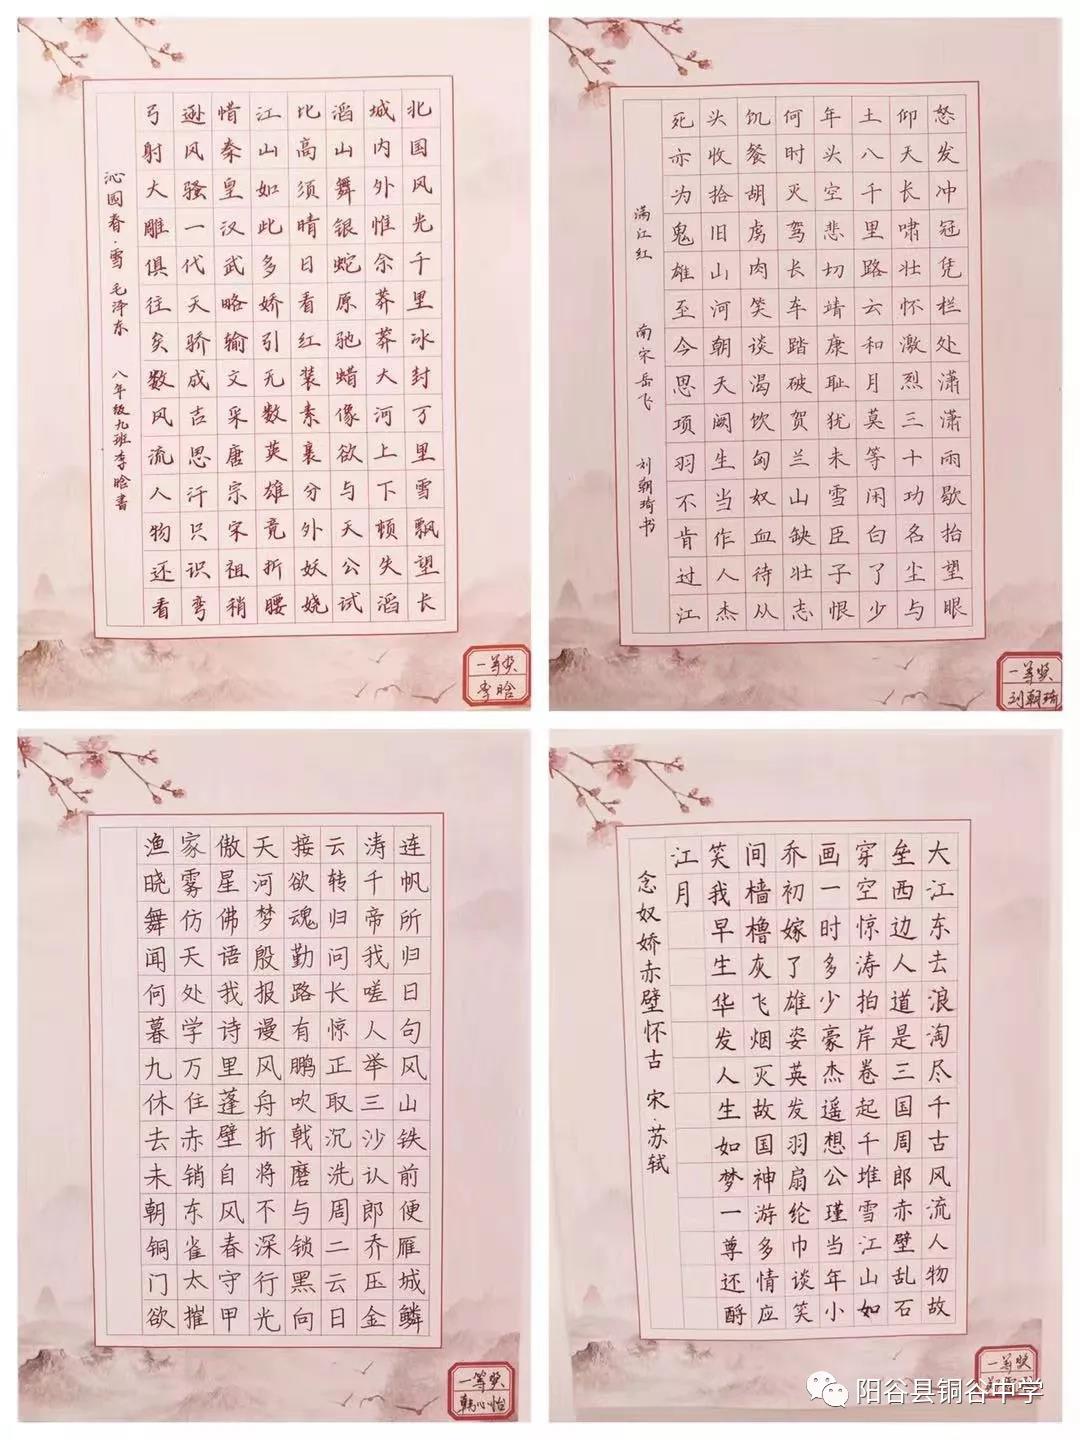 北国风光千里冰封万里雪飘望长
城内外惟余莽莽大河上下顿失滔
滔山舞银蛇原驰蜡像欲与天公试
比高须晴日看红装素裹分外妖娆
江山如此多娇引无数英雄竞折腰
惜秦皇汉武略输文采唐宗宋祖稍
逊风骚一代天骄成吉思汗只识弯
弓射大雕俱往矣数风流人物还看
沁园春·雪 毛泽东 八年级九班李晗书
一等奖
李晗
怒发冲冠凭栏处潇潇雨歇抬望眼
仰天长啸壮怀激烈三十功名尘与
土八千里路云和月莫等闲白了少
年头空悲切靖康耻犹未雪臣子恨
何时灭驾长车踏破贺兰山缺壮志
饥餐胡虏肉笑谈渴饮匈奴血待从
头收拾旧山河朝天阙生当作人杰
死亦为鬼雄至今思项羽不肯过江
满江红 南宋岳飞 刘朝琦书
一等奖
刘朝琦
渔家傲天接云涛连
晓雾星河欲转千帆
舞仿佛梦魂归帝所
闻天语殷勤问我归
何处我报路长嗟日
暮学诗谩有惊人句
九万里风鹏正举风
休住蓬舟吹取三山
去赤壁折戟沉沙铁
未销自将磨洗认前
朝东风不与周郎便
铜雀春深锁二乔雁
门太守行黑云压城
欲摧甲光向日金鳞
一等奖
韩心怡
大江东去浪淘尽千古风流人物故
垒西边人道是三国周郎赤壁乱石
穿空惊涛拍岸卷起千堆雪江山如
画一时多少豪杰遥想公瑾当年小
乔初嫁了雄姿英发羽扇纶巾谈笑
间樯橹灰飞烟灭故国神游多情应
笑我早生华发人生如梦一尊还酹
江月
念奴娇赤壁怀古 宋·苏轼
一等奖
阳谷县铜谷中学